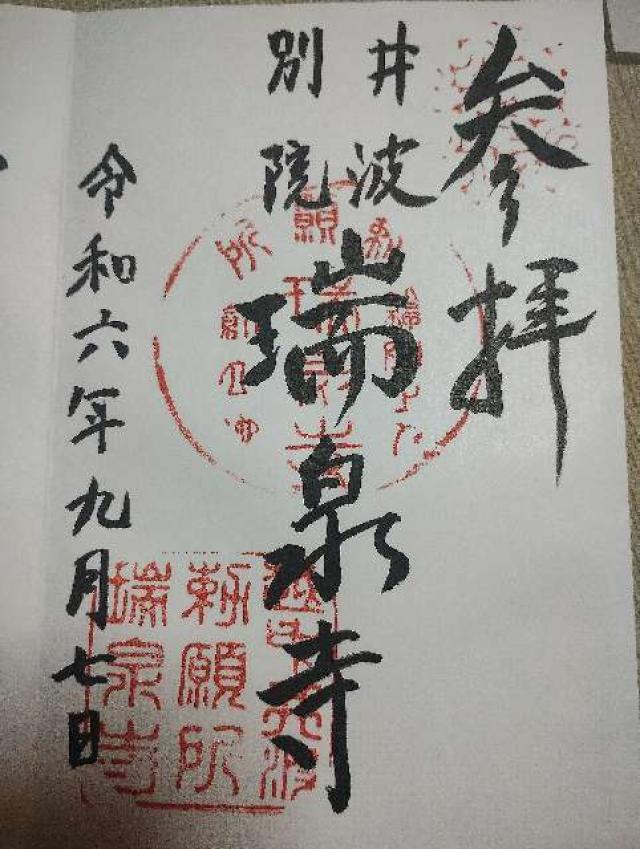 参拝
井波
別院
瑞泉寺
令和六年九月七日
勅願所
瑞泉寺